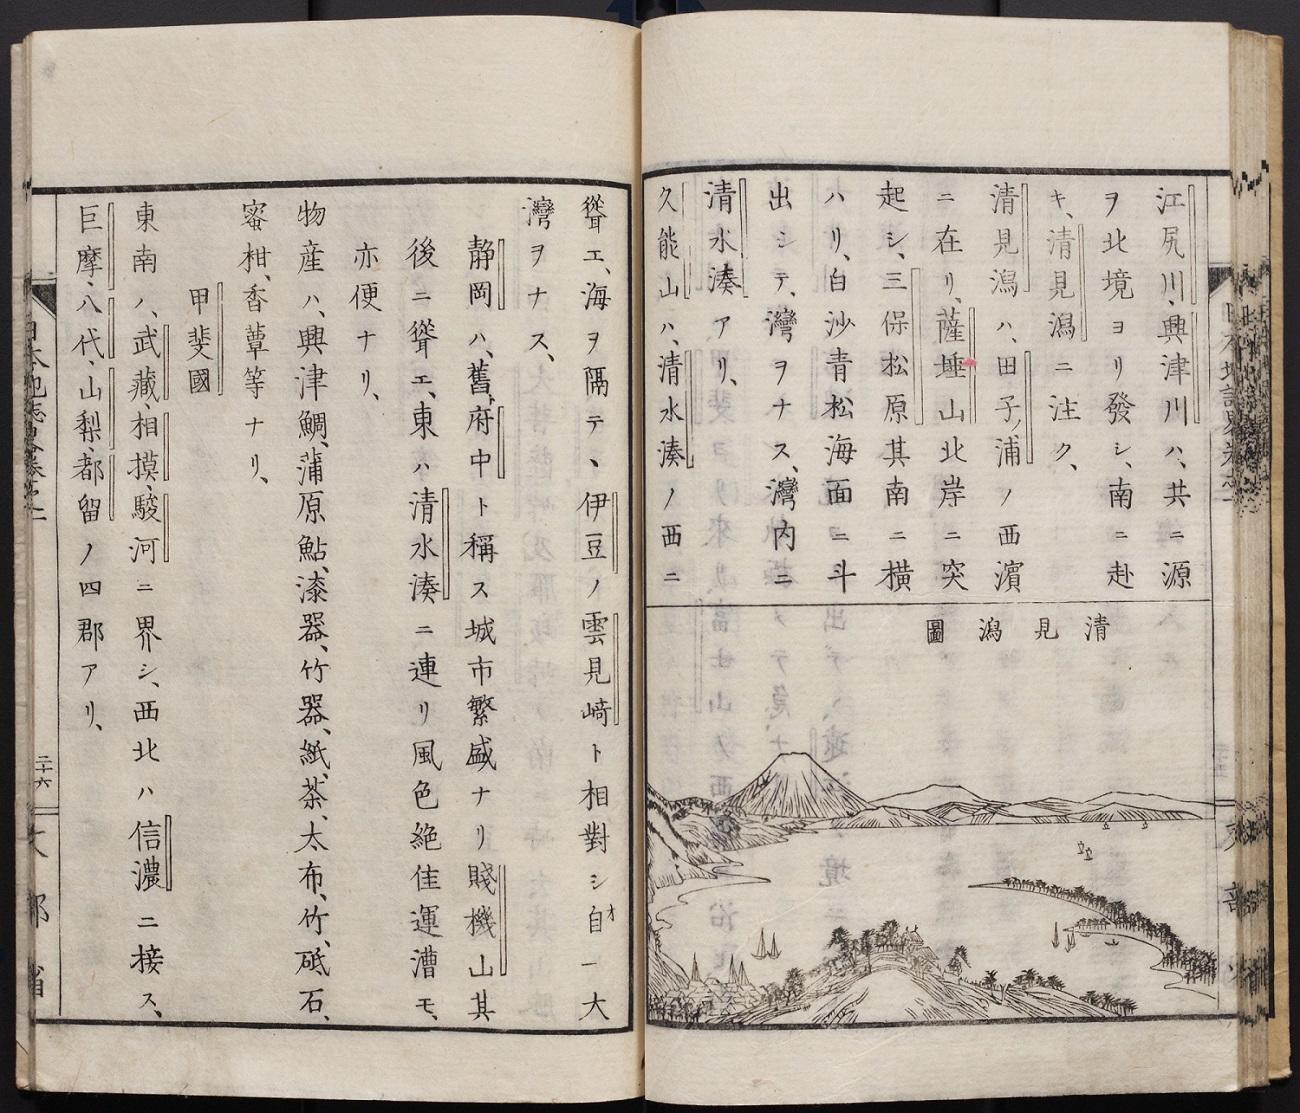 江尻川、興津川ハ、共ニ源
ヲ北境ヨリ發シ、南ニ赴
キ、清見潟ニ注ク、
清見潟ハ、田子ノ浦ノ西濱
ニ在リ、薩埵山北岸ニ突
起シ、三保松原其南ニ横
ハリ、白沙青松海面ニ斗
出シテ、灣ヲナス、灣内ニ
清水湊アリ、
久能山ハ、清水湊ノ西ニ
清見潟圖
聳エ、海ヲ隔テヽ伊豆ノ雲見崎ト相對シ自オ一大
灣ヲナス、
静岡ハ、舊ト府中ト稱ス城市繁盛ナリ賤機山其
後ニ聳エ、東ハ清水湊ニ連リ風色絶佳運漕モ、
亦便ナリ、
物産ハ、興津鯛、蒲原鮎、漆器、竹器、紙、茶、太布、竹、砥石、
蜜柑、香蕈等ナリ、
甲斐國
東南ハ、武藏、相摸、駿河ニ界シ、西北ハ信濃ニ接ス、
巨摩、八代、山梨、都留ノ四郡アリ、
日本地誌略卷之二
二十六
文部省